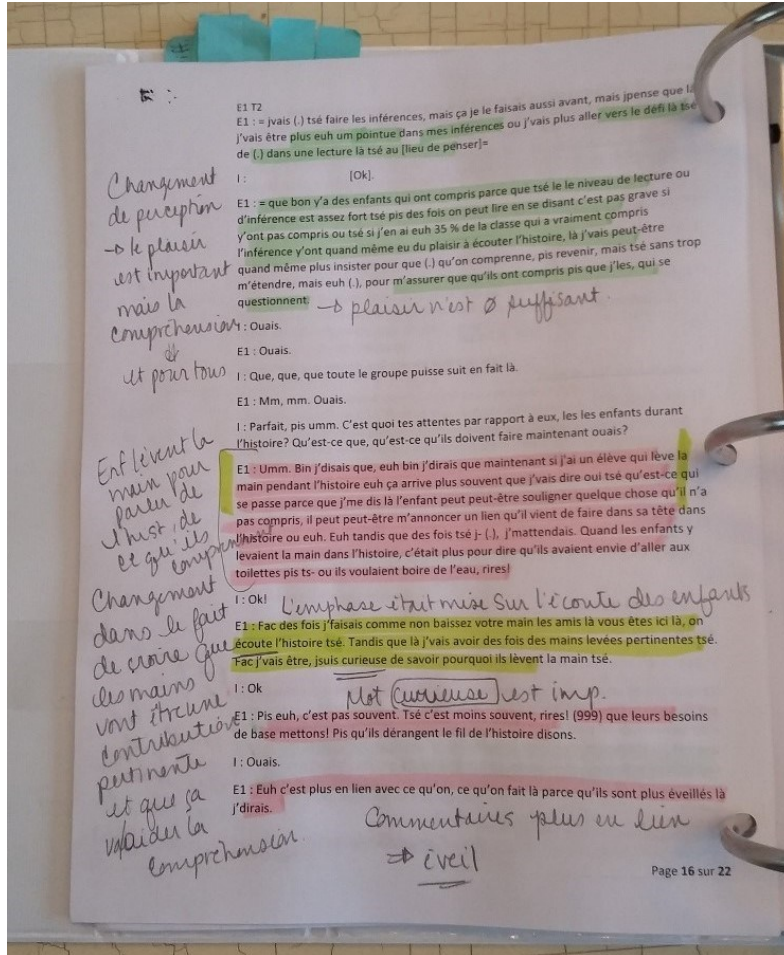 E1 T2
E1 : = jvais (.) tsé faire les inférences, mais ça je le faisais aussi avant, mais jpense que là
j'vais être plus euh um pointue dans mes inférences ou j'vais plus aller vers le défi là tsé
de (.) dans une lecture là tsé au [lieu de penser]=
I : [Ok].
E1 : = que bon y'a des enfants qui ont compris parce que tsé le le niveau de lecture ou
d'inférence est assez fort tsé pis des fois on peut lire en se disant c'est pas grave si
y'ont pas compris ou tsé si j'en ai euh 35 % de la classe qui a vraiment compris
l'inférence y'ont quand même eu du plaisir à écouter l'histoire, là j'vais peut-être
quand même plus insister pour que (.) qu'on comprenne, pis revenir, mais tsé sans trop
m'étendre, mais euh (.), pour m'assurer que qu'ils ont compris pis que j'les, qui se
questionnent. → plaisir n'est Ø suffisant.
Changement
de perception
→ le plaisir
est important
mais la
compréhension
et pour tous
I : Ouais.
E1 : Ouais.
I : Que, que, que toute le groupe puisse suit en fait là.
E1 : Mm, mm. Ouais.
I : Parfait, pis umm. C'est quoi tes attentes par rapport à eux, les les enfants durant
l'histoire? Qu'est-ce que, qu'est-ce qu'ils doivent faire maintenant ouais?
E1 : Umm. Bin j'disais que, euh bin j'dirais que maintenant si j'ai un élève qui lève la
main pendant l'histoire euh ça arrive plus souvent que j'vais dire oui tsé qu'est-ce qui
se passe parce que j'me dis là l'enfant peut peut-être souligner quelque chose qu'il n'a
pas compris, il peut peut-être m'annoncer un lien qu'il vient de faire dans sa tête dans
l'histoire ou euh. Euh tandis que des fois tsé j- (.), j'mattendais. Quand les enfants y
levaient la main dans l'histoire, c'était plus pour dire qu'ils avaient envie d'aller aux
toilettes pis ts- ou ils voulaient boire de l'eau, rires!
Enf lèvent la
main pour
parler de
l'hist, de
ce qu'ils
comprennent
I : Ok! L'emphase était mise sur l'écoute des enfants
E1 : Fac des fois j'faisais comme non baissez votre main les amis là vous êtes ici là, on
écoute l'histoire tsé. Tandis que là j'vais avoir des fois des mains levées pertinentes tsé.
Fac j'vais être, jsuis curieuse de savoir pourquoi ils lèvent la main tsé.
I : Ok Mot curieuse est imp.
E1 : Pis euh, c'est pas souvent. Tsé c'est moins souvent, rires! (999) que leurs besoins
de base mettons! Pis qu'ils dérangent le fil de l'histoire disons.
I : Ouais.
E1 : Euh c'est plus en lien avec ce qu'on, ce qu'on fait là parce qu'ils sont plus éveillés là
j'dirais.
Changement
dans le fait
de croire que
les mains
vont être une
contribution
pertinente
et que ça
va aider la
compréhension.
Commentaires plus en lien
⇒ éveil
Page 16 sur 22